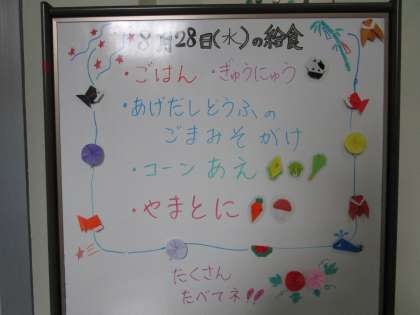 8月28日(水)の給食
・ごはん ・ぎゅうにゅう
・あげだしどうふの
ごまみそがけ
・コーンあえ
・やまとに
たくさん
たべてネ!!